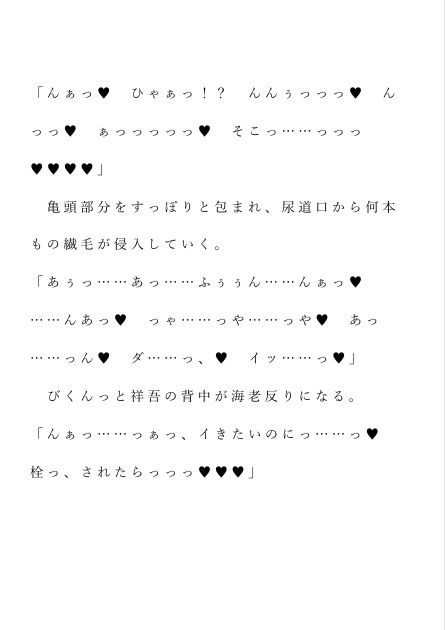 「んぁっ♥　ひゃぁっ！？　んんぅっっっ♥　ん
っっ♥　ぁっっっっっ♥　そこっ……っっっ
♥♥♥♥」
　亀頭部分をすっぽりと包まれ、尿道口から何本
もの繊毛が侵入していく。
「あぅっ……あっ……ふぅぅん……んぁっ♥
……んあっ♥　っゃ……っや……っや♥　あっ
……っん♥　ダ……っ、♥　イッ……っ♥」
　びくんっと祥吾の背中が海老反りになる。
「んぁっ……っぁっ、イきたいのにっ……っ♥
栓っ、されたらっっっ♥♥♥」